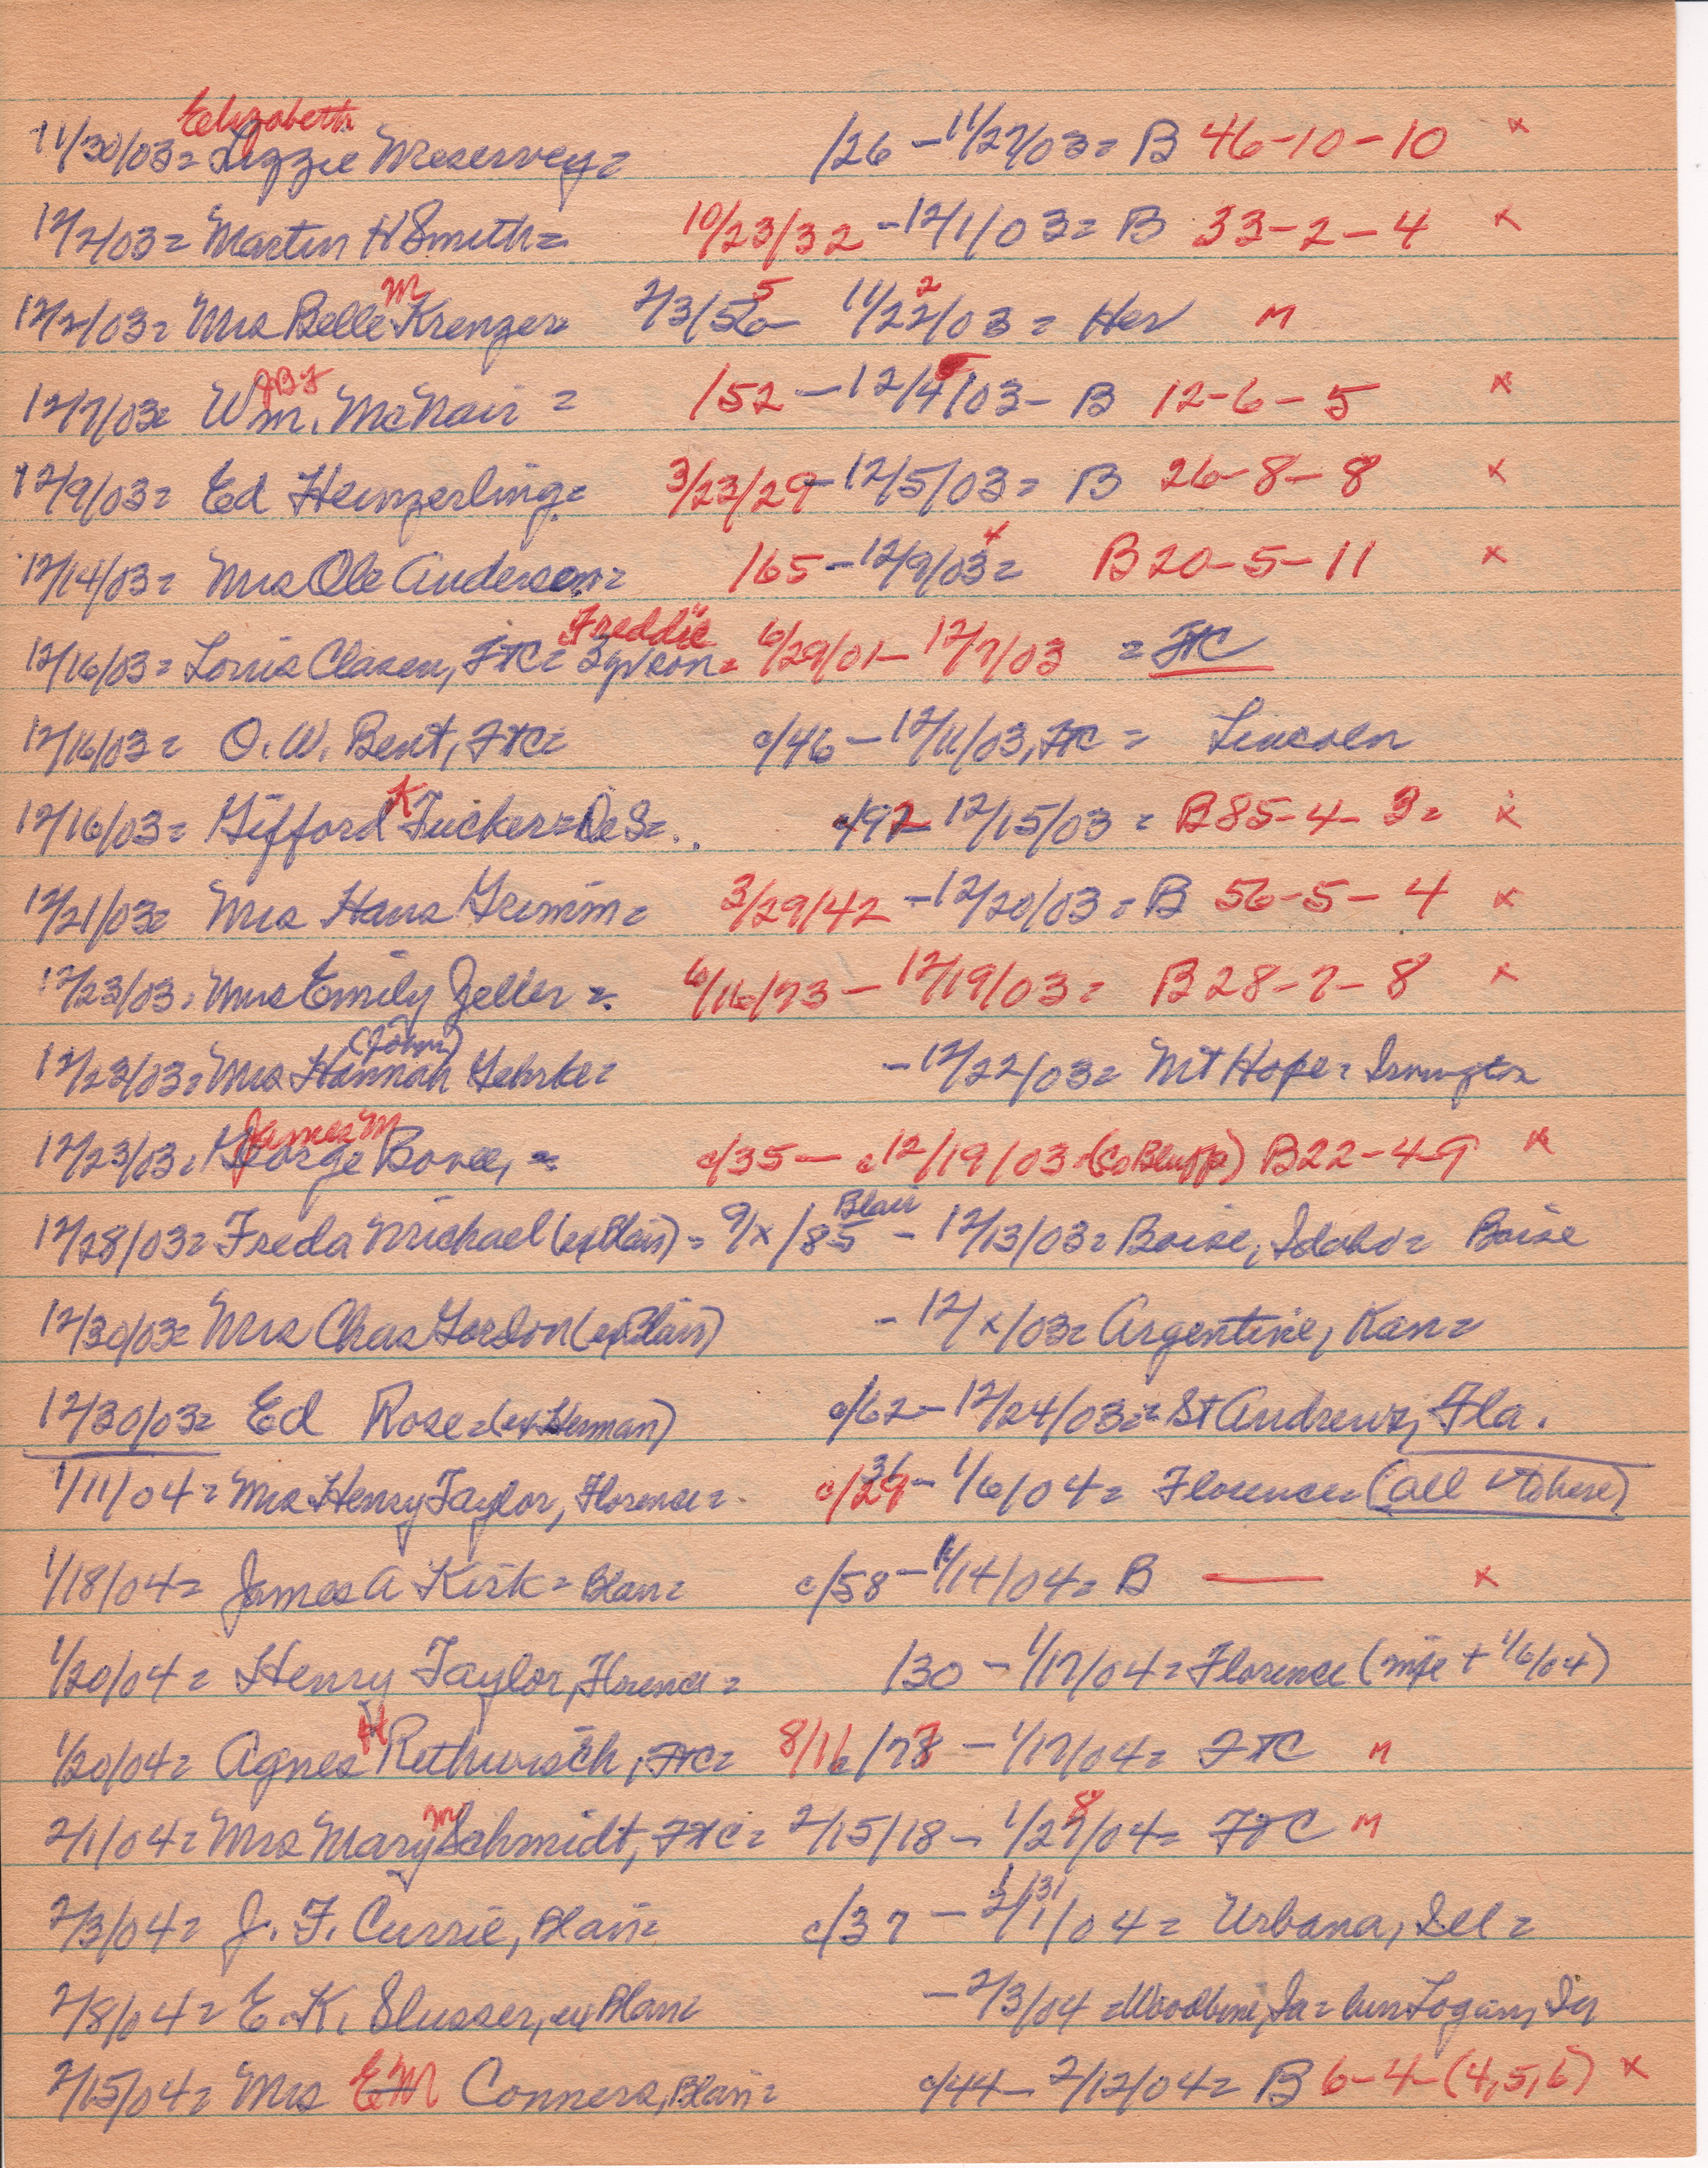 Elizabeth
11/30/03= Lizzie Meservey= /26 - 11/27/03= B 46-10-10 x
12/2/03= Martin H Smith= 10/23/32 - 12/1/03= B 33-2-4 x
M 5 2
12/2/03= Mrs Belle Krenzer= 2/3/56- 11/22/03= Her M
12/7/03= Wm. McNair = /52 - 12/4/03- B 12-6-5 x
12/9/03= Ed Heinzerling= 3/23/29- 12/5/03= B 26-8-8 x
4
12/14/03= Mrs Ole Anderson= /65 - 12/9/03= B 20-5-11 x
Freddie
12/16/03= Louis Clasen, FtC= 6/29/01- 12/7/03 = FtC
12/16/03= O. W. Bent, FtC= c/46 - 12/11/03, FtC = Lincoln
K
12/16/03= Gifford Tucker=DeS= c/92- 12/15/03= B 85-4-3= x
12/21/03= Mrs Hans Grimm= 3/29/42 - 12/20/03= B 56-5-4 x
12/23/03= Mrs Emily Zeller= 6/16/73 - 12/19/03= B 28-7-8 x
(John)
12/23/03= Mrs Hannah Gehrke= - 12/22/03= Mt Hope= Irvington
James M
12/23/03= George Bovee, = c/35 - c12/19/03 (Co Blupp) B 22-4-9 x
Blair
12/28/03= Freda Michael (exBlair)= 9/x/85 - 12/13/03= Boise, Idaho= Boise
12/30/03= Mrs Chas Gordon (exBlair) - 12/x/03= Argentine, Kan=
12/30/03= Ed Rose=(exHerman) c/62- 12/24/03= St Andrews, Fla.
36
1/11/04= Mrs Henry Taylor, Florence= c/29- 1/6/04= Florence (all to here)
1/18/04= James A Kirk= Blair= c/58- 1/14/04= B — x
1/20/04= Henry Taylor, Florence= /30 - 1/17/04= Florence (wife + 1/6/04)
H
1/20/04= Agnes Rethwisch, FtC= 8/16/78 - 1/17/04= FTC M
m 8
2/1/04= Mrs Mary Schmidt, FtC= 2/15/18- 1/27/04= FTC M
1/31
2/3/04= J. F. Currie, Blair= c/37 - 2/1/04= Urbana, Ill=
2/8/04= E. K. Slusser, ex Blair= - 2/3/04 =Woodbine, Ia= bur Logan, Ia
2/15/04= Mrs EM Conners, Blair= c/44- 2/12/04= B 6-4-(4,5,6) x